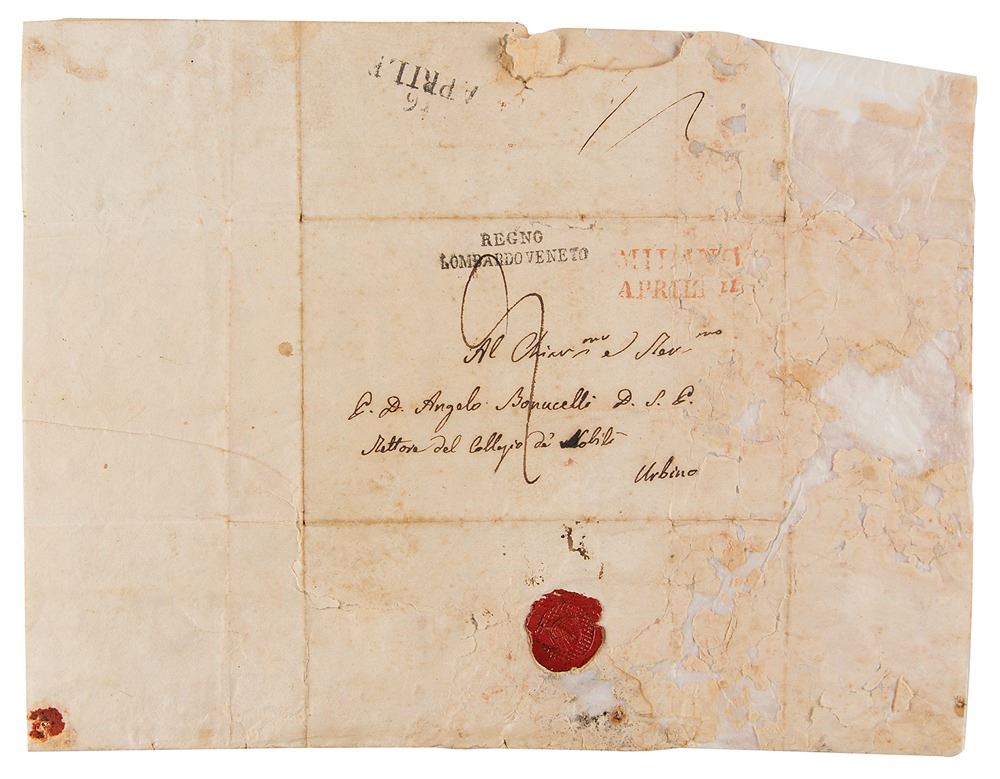 16
APRILE
REGNO
LOMBARDO VENETO
MILANO
APRILE 11
Al Chiar.mo e Rev.mo
P. D. Angelo Bonucelli D. S. P.
Rettore del Collegio de' Nobili
Urbino